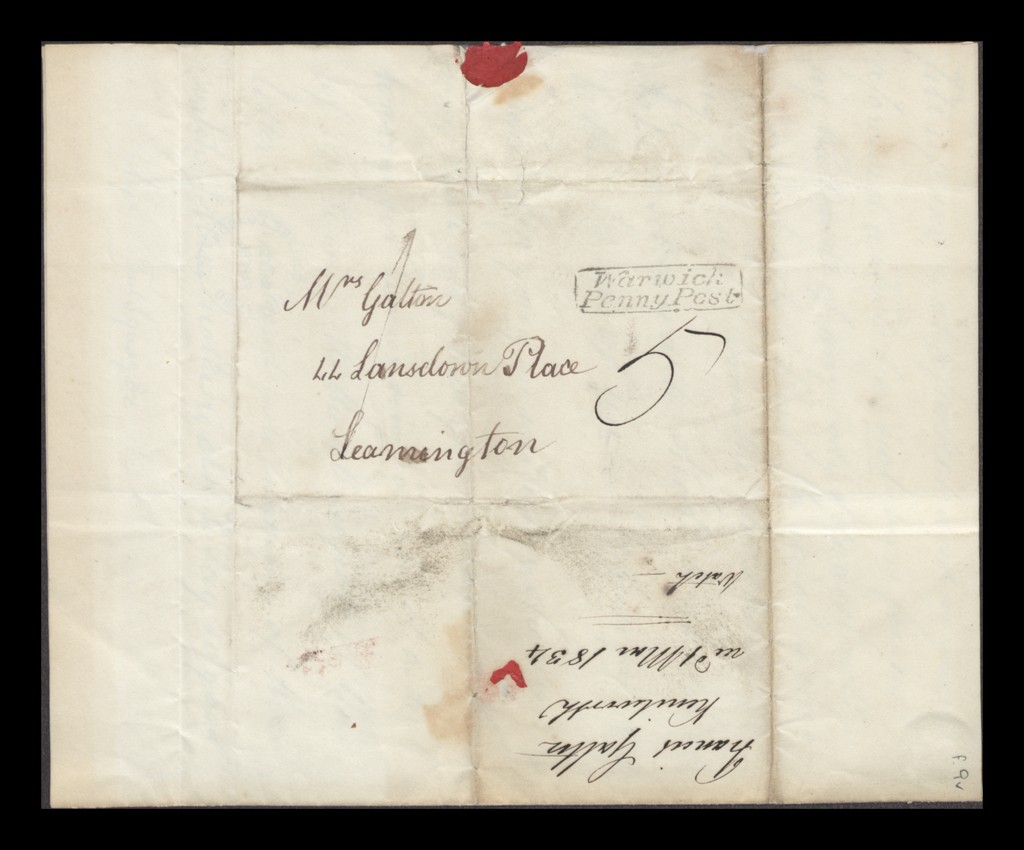 Mrs Galton
44 Lansdown Place
Leamington
Warwick
Penny Post
5
1
Francis Galton
Kenilworth
Mar 1834
Watch